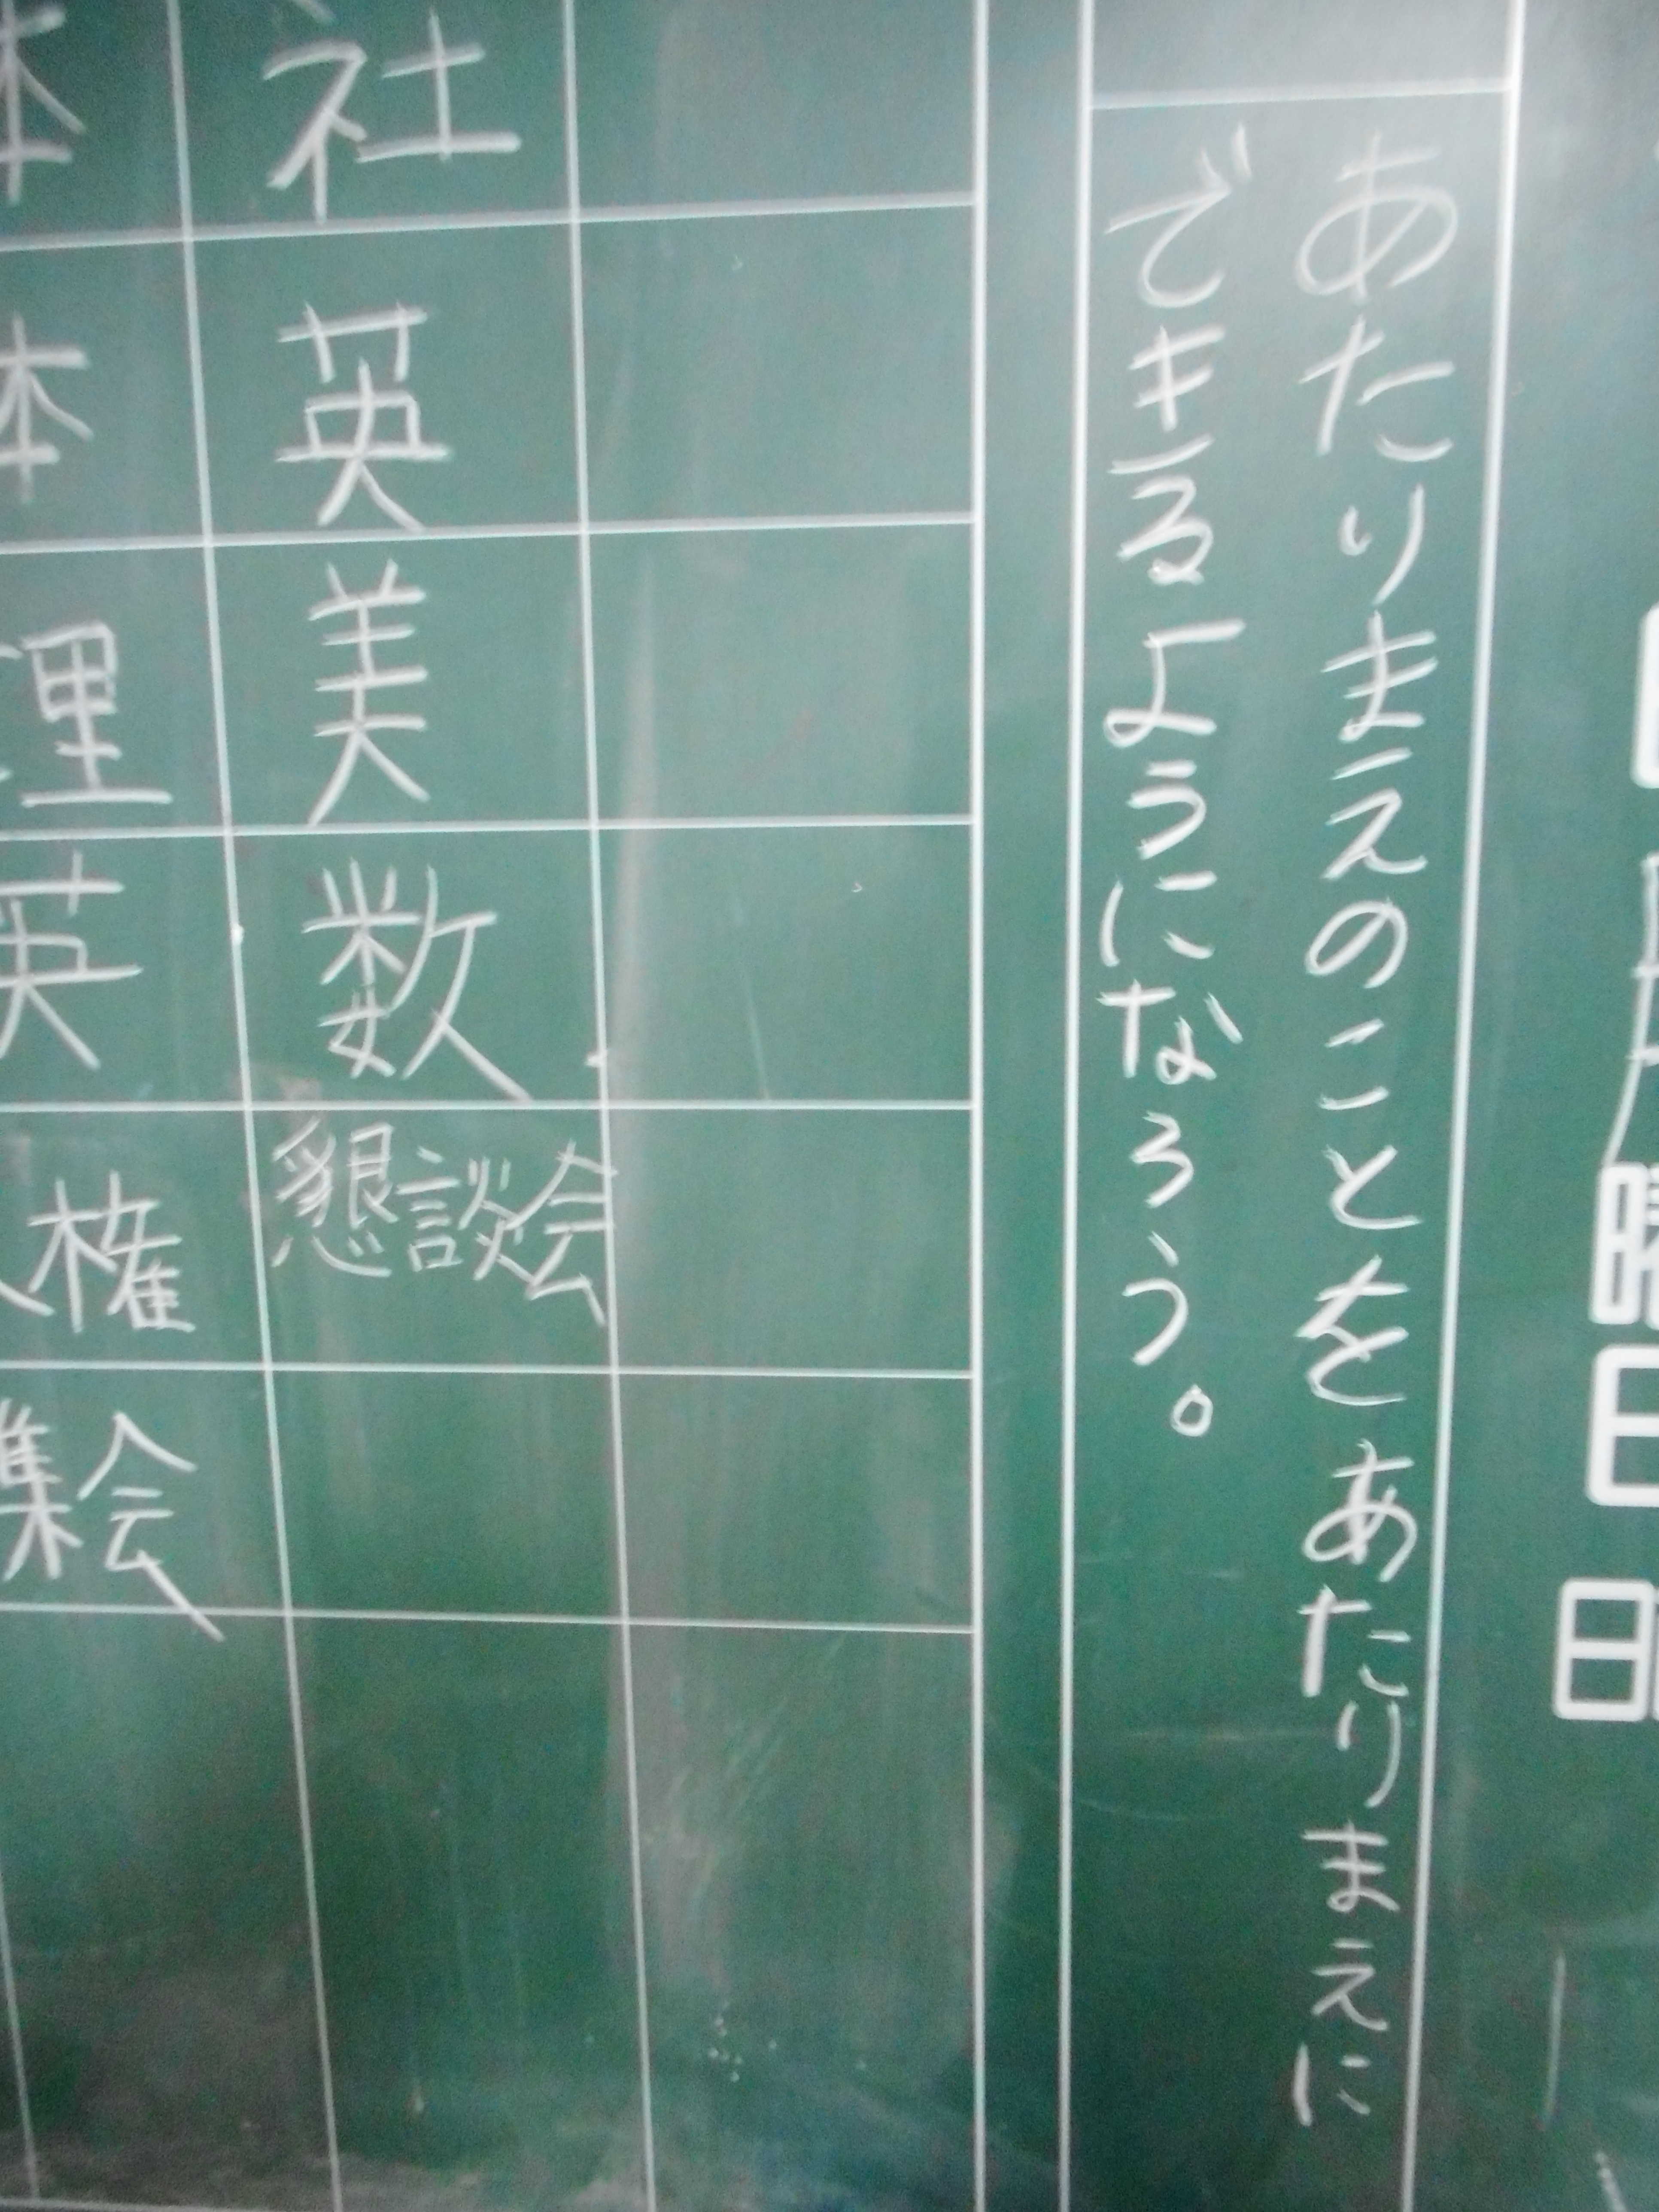 曜日
あたりまえのことをあたりまえに
できるようになろう。
社
英
美
数
懇談会
体
体
理
英
人権
集会